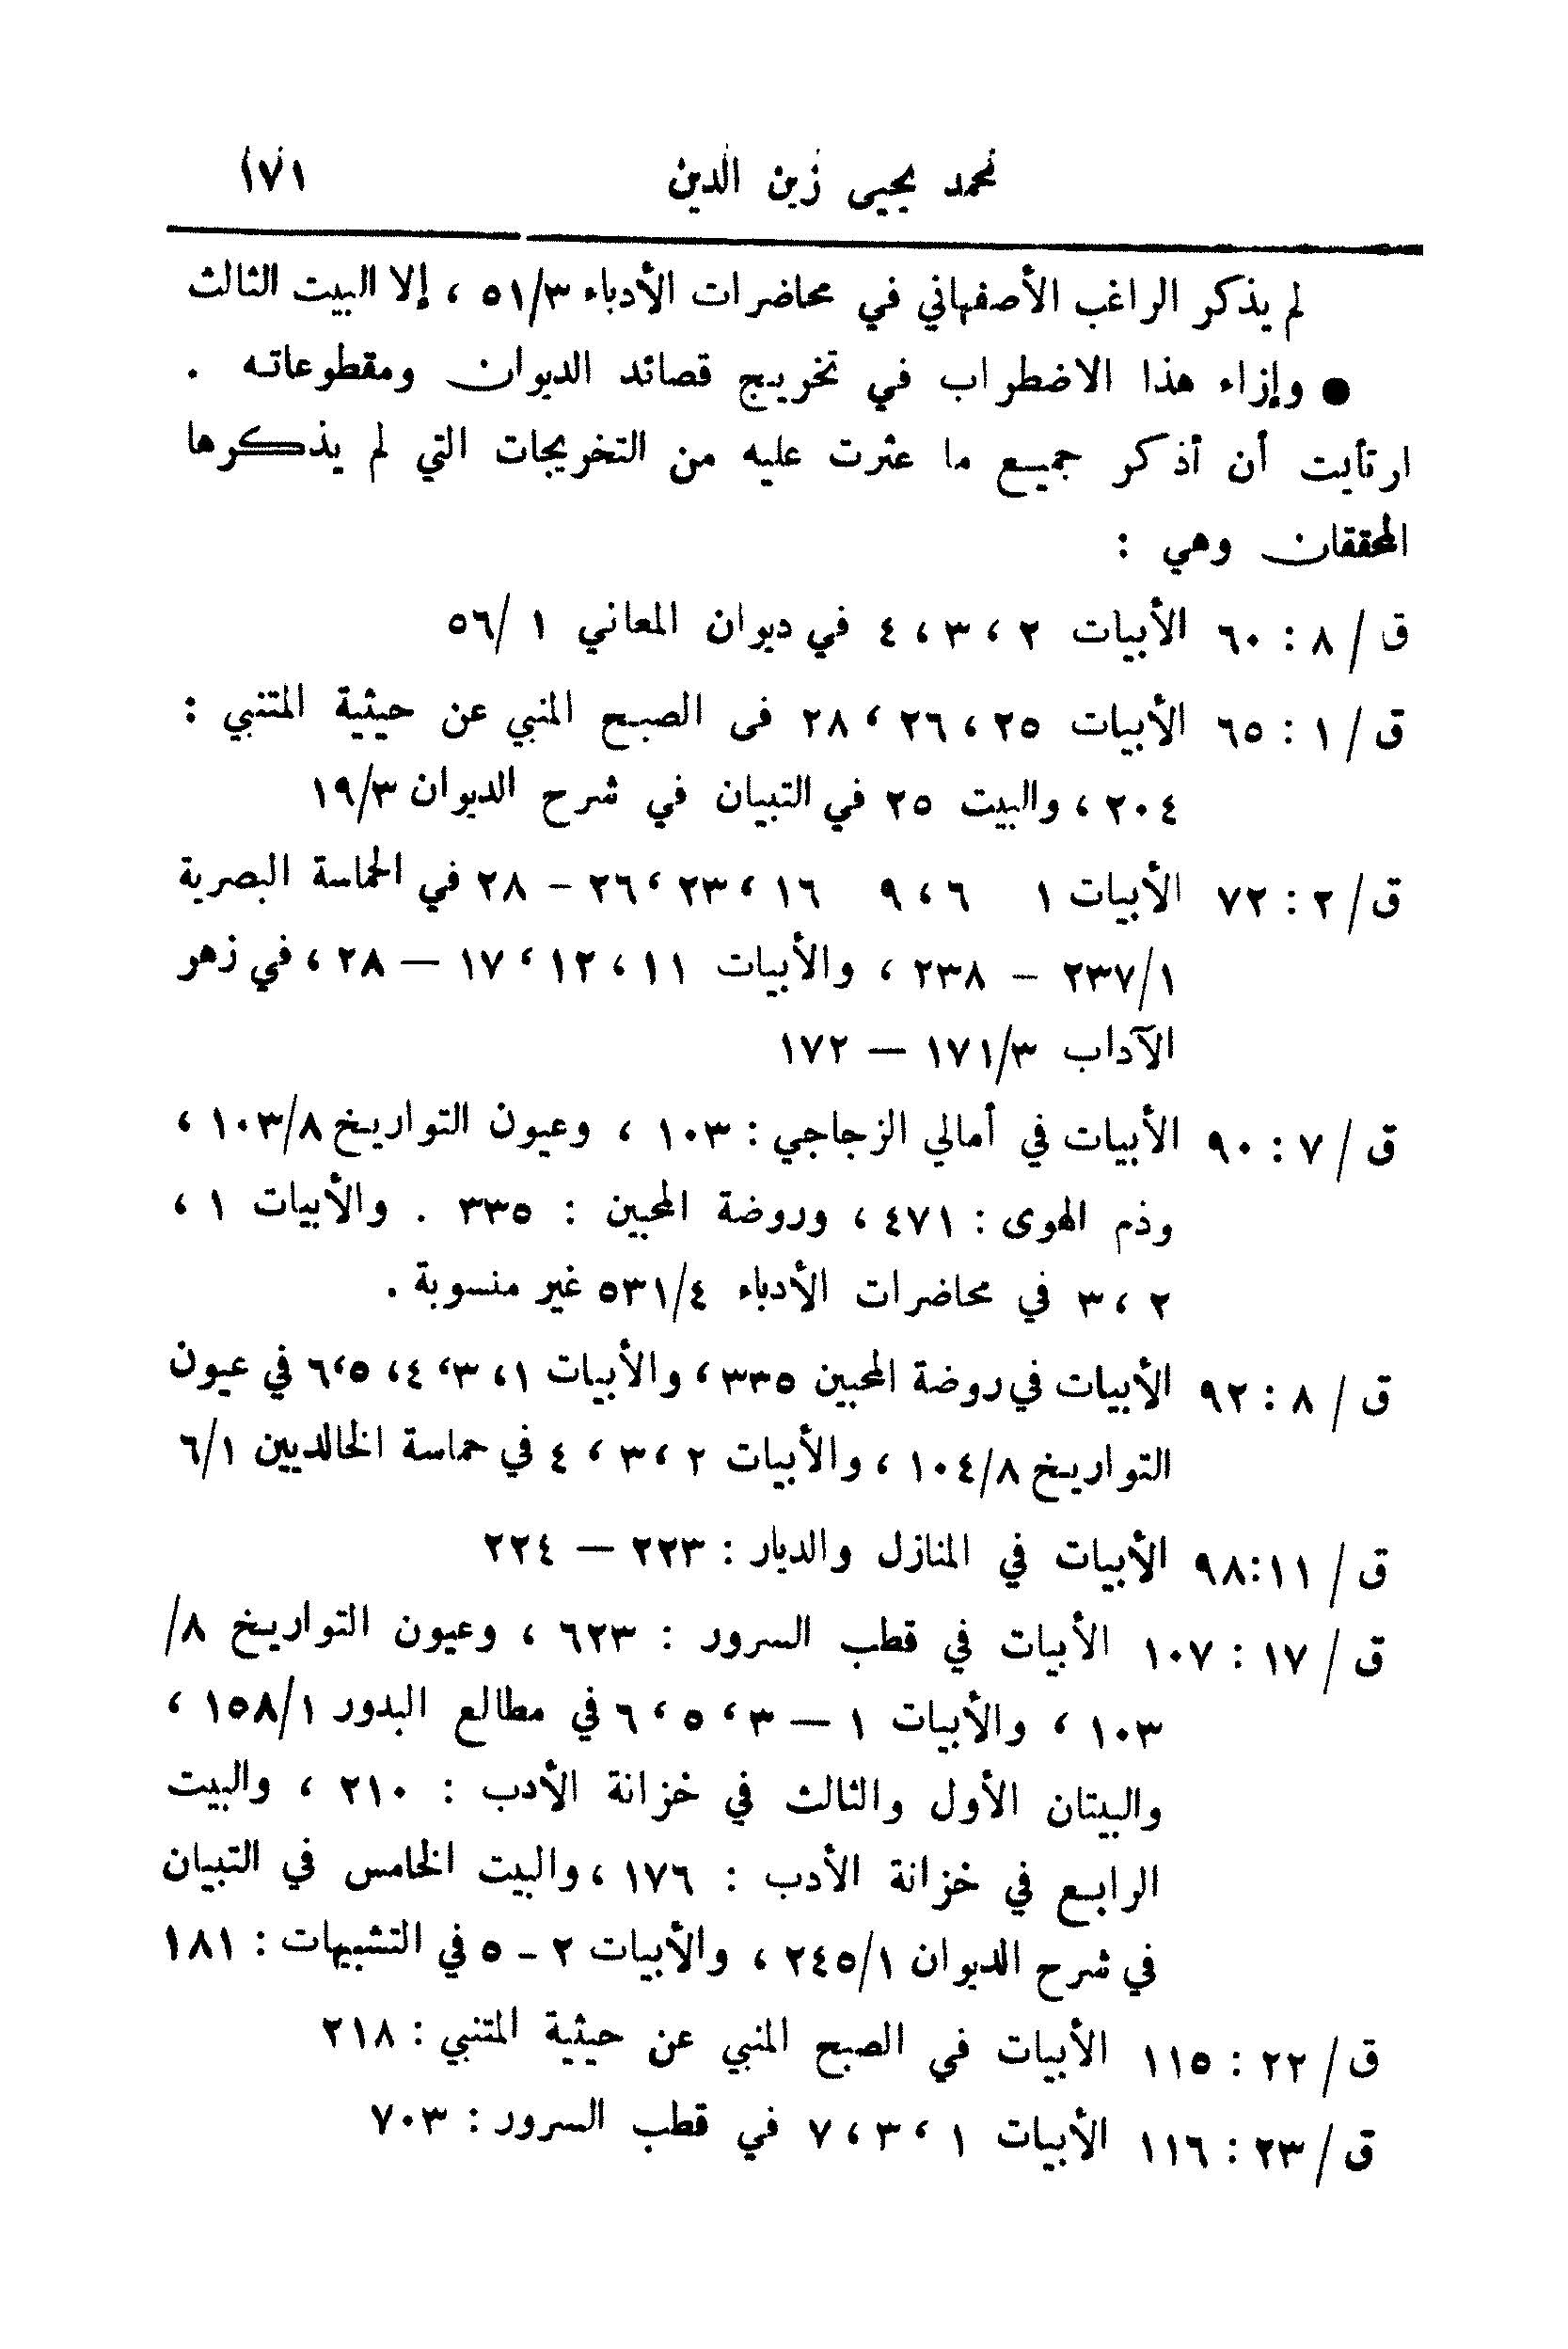 محمد يحيى زين الدين ١٧١
لم يذكر الراغب الأصفهاني في محاضرات الأدباء ٥١/٣ ، إلا البيت الثالث
● وإزاء هذا الاضطراب في تخريج قصائد الديوان ومقطوعاته .
ارتأيت أن أذكر جميع ما عثرت عليه من التخريجات التي لم يذكرها
المحققان وهي :
ق / ٨ : ٦٠ الأبيات ٢ ، ٣ ، ٤ في ديوان المعاني ١ /٥٦
ق / ١ : ٦٥ الأبيات ٢٥ ، ٢٦ ، ٢٨ فى الصبح المنبي عن حيثية المتنبي :
٢٠٤ ، والبيت ٢٥ في التبيان في شرح الديوان ١٩/٣
ق / ٢ : ٧٢ الأبيات ١ ٦ ، ٩ ١٦ ، ٢٣ ، ٢٦ – ٢٨ في الحماسة البصرية
٢٣٧/١ – ٢٣٨ ، والأبيات ١١ ، ١٢ ، ١٧ – ٢٨ ، في زهر
الآداب ١٧١/٣ – ١٧٢
ق / ٧ : ٩٠ الأبيات في أمالي الزجاجي : ١٠٣ ، وعيون التواريخ ١٠٣/٨ ،
وذم الهوى : ٤٧١ ، وروضة المحبين : ٣٣٥ . والأبيات ١ ،
٢ ، ٣ في محاضرات الأدباء ٥٣١/٤ غير منسوبة .
ق / ٨ : ٩٢ الأبيات في روضة المحبين ٣٣٥ ، والأبيات ١ ، ٣ ، ٤ ، ٥ ، ٦ في عيون
التواريخ ١٠٤/٨ ، والأبيات ٢ ، ٣ ، ٤ في حماسة الخالديين ٦/١
ق / ١١ : ٩٨ الأبيات في المنازل والديار : ٢٢٣ – ٢٢٤
ق / ١٧ : ١٠٧ الأبيات في قطب السرور : ٦٢٣ ، وعيون التواريخ ٨/
١٠٣ ، والأبيات ١ – ٣ ، ٥ ، ٦ في مطالع البدور ١٥٨/١ ،
والبيتان الأول والثالث في خزانة الأدب : ٢١٠ ، والبيت
الرابع في خزانة الأدب : ١٧٦ ، والبيت الخامس في التبيان
في شرح الديوان ٢٤٥/١ ، والأبيات ٢ – ٥ في التشبيهات : ١٨١
ق / ٢٢ : ١١٥ الأبيات في الصبح المنبي عن حيثية المتنبي : ٢١٨
ق / ٢٣ : ١١٦ الأبيات ١ ، ٣ ، ٧ في قطب السرور : ٧٠٣